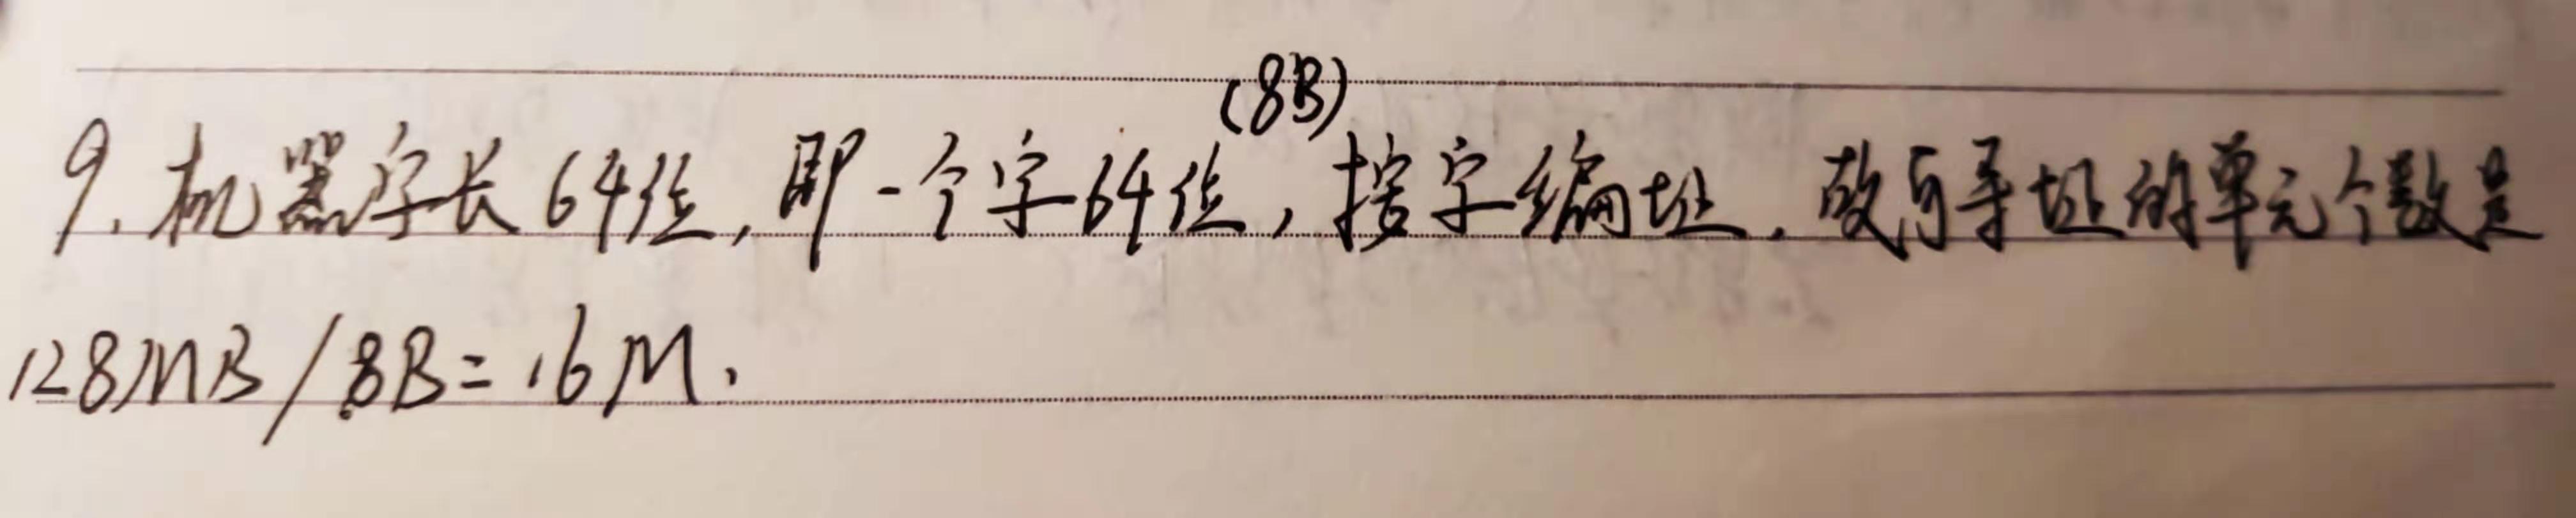 (8B)
9.机器字长64位,即一个字64位,按字编址.故可寻址的单元个数是
128MB/8B=16M.